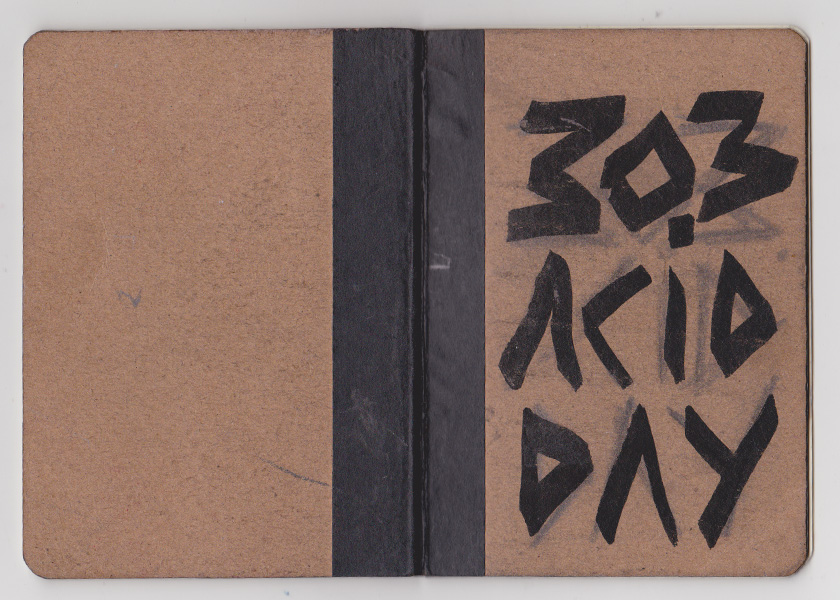 303
ACID
DAY